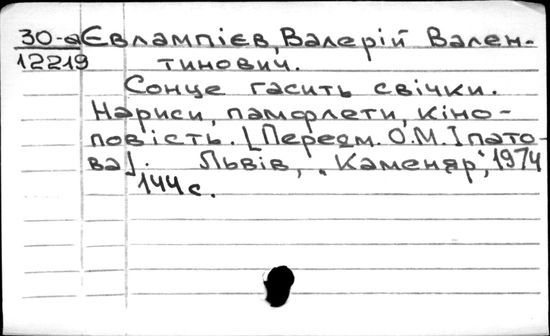 30-а Євлампієв, Валерій Вален-
12219 тинович.
Сонце гасить свічки.
Нариси, памфлети, кіно-
повість. [Передм. О.М.Іпато-
ва]. Львів, "Каменяр", 1974
144 с.